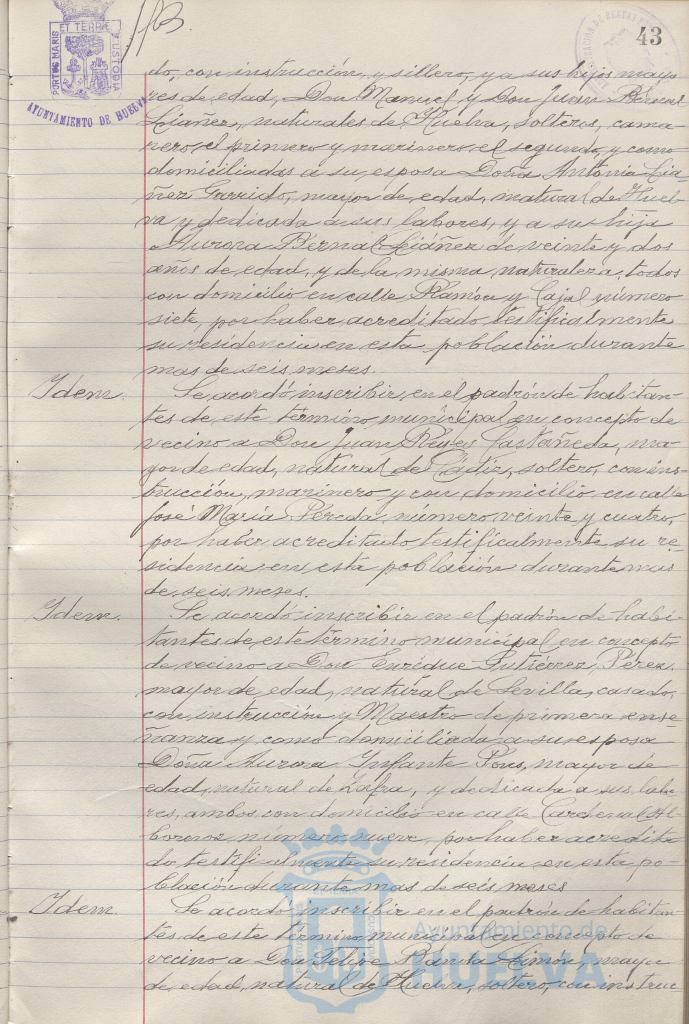 43
PORTUS MARIS
ET TERRE
CUSTODIA
AYUNTAMIENTO DE HUELVA
do, con instrucción, y sillero, y a sus hijos mayo
res de edad, Don Manuel y Don Juan Bernal
Liáñez, naturales de Huelva, solteros, cama
rero, el primero y marinero, el segundo, y como
domiciliadas a su esposa Doña Antonia Liá
ñez Garrido, mayor de edad, natural de Huel
va y dedicada a sus labores, y a su hija
Aurora Bernal Liáñez de veinte y dos
años de edad, y de la misma naturaleza, todos
con domicilio en calle Ramón y Cajal número
siete, por haber acreditado testificalmente
su residencia en esta población durante
mas de seis meses.
Idem. Se acordó inscribir en el padrón de habitan
tes de este término municipal en concepto de
vecino a Don Juan Reyes Castañeda, ma
yor de edad, natural de Cádiz, soltero, con ins
trucción, marinero y con domicilio en calle
José María Pereda número veinte y cuatro,
por haber acreditado testificalmente su re
sidencia en esta población durante mas
de seis meses.
Idem. Se acordó inscribir en el padrón de habi
tantes de este término municipal en concepto
de vecino a Don Enrique Gutiérrez Pérez,
mayor de edad, natural de Sevilla, casado,
con instrucción y Maestro de primera ense
ñanza y como domiciliada a su esposa
Doña Aurora Infante Pons, mayor de
edad, natural de Zafra, y dedicada a sus labo
res, ambos con domicilio en calle Cardenal Al
bornoz número nueve, por haber acredita
do testificalmente su residencia en esta po
blación durante mas de seis meses
Idem. Se acordó inscribir en el padrón de habitan
tes de este término municipal en concepto de
vecino a Don Felipe Limón, mayor
de edad, natural de Huelva, soltero, con instruc
Ayuntamiento de
HUELVA